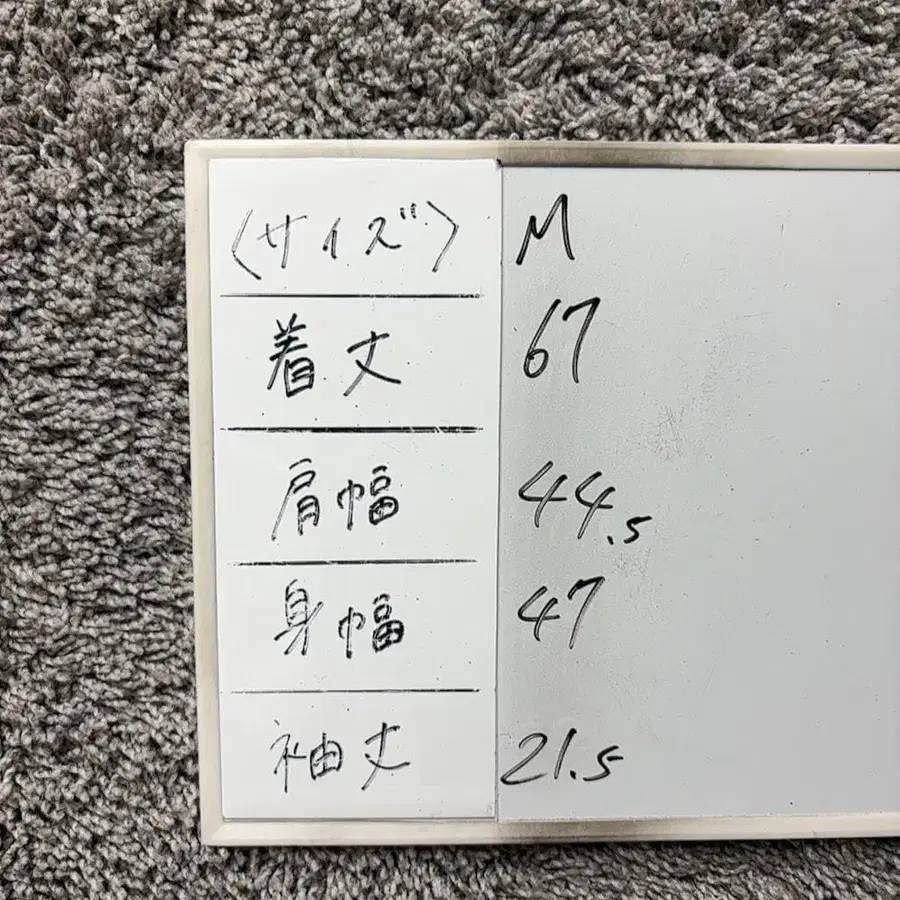 〈サイズ〉 M
着丈 67
肩幅 44.5
身幅 47
袖丈 21.5